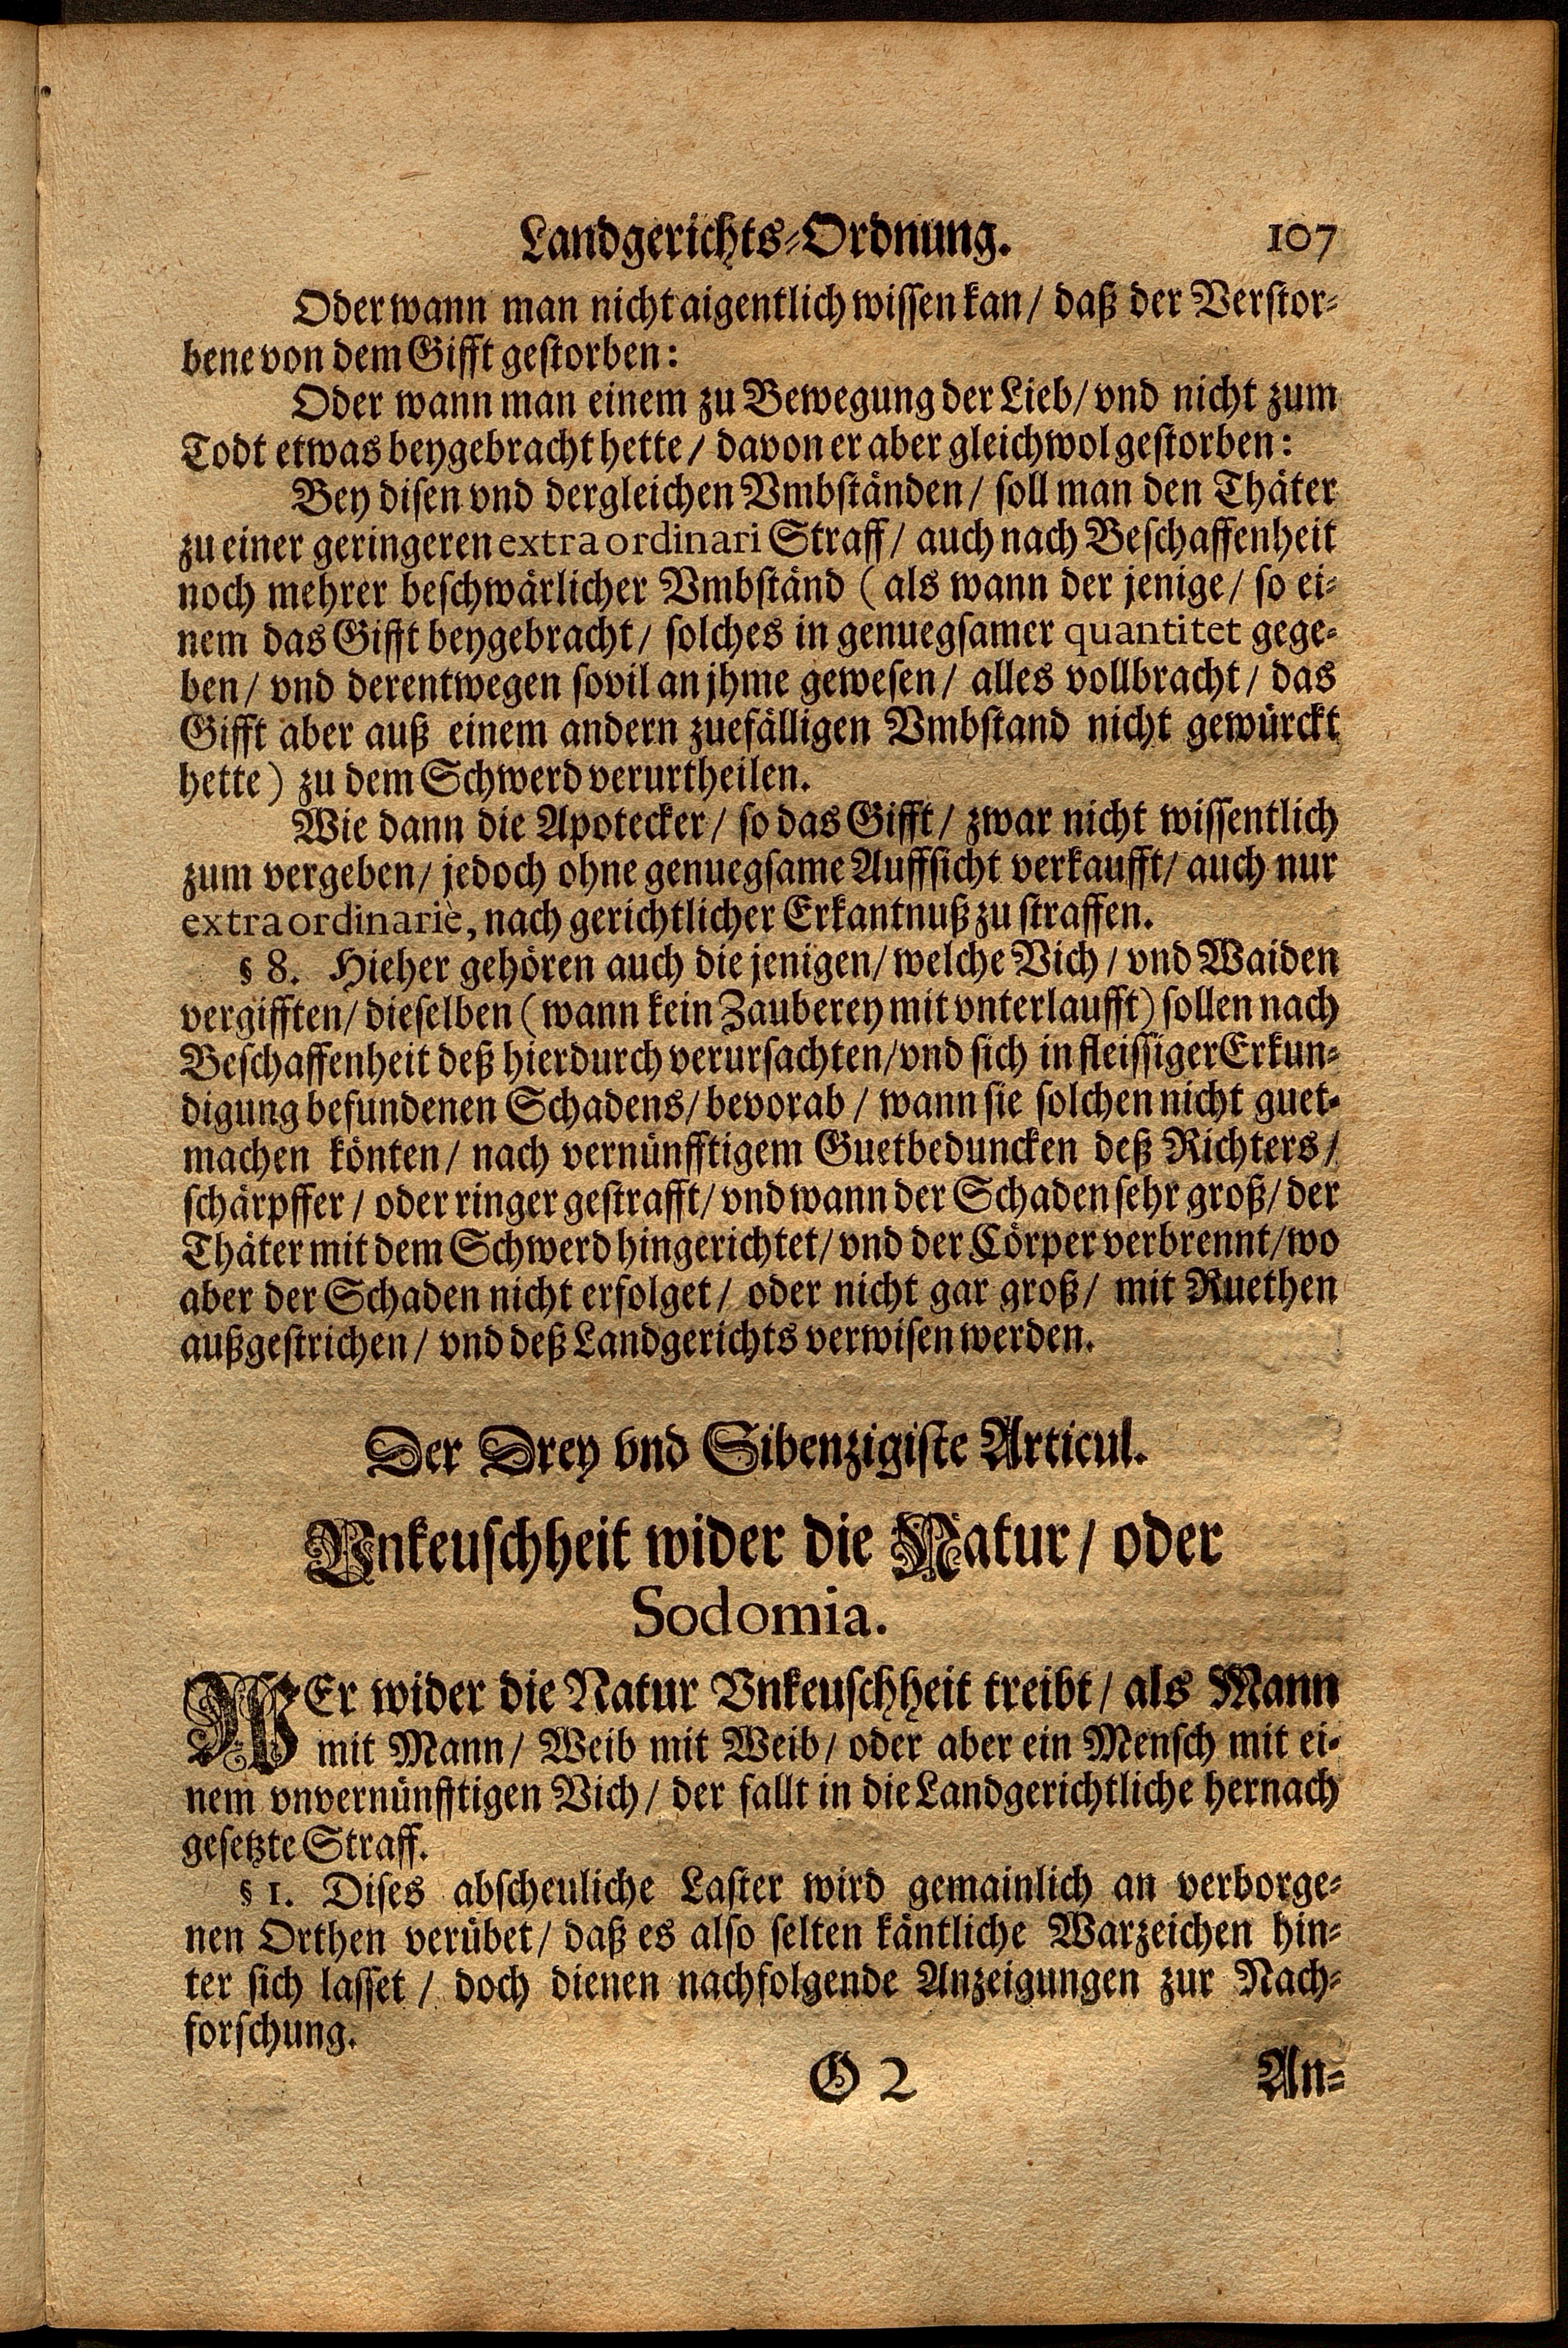 Landgerichts-Ordnung. 107
Oder wann man nicht aigentlich wissen kan / daß der Verstor-
bene von dem Gifft gestorben:
Oder wann man einem zu Bewegung der Lieb / vnd nicht zum
Todt etwas beygebracht hette / davon er aber gleichwol gestorben:
Bey disen vnd dergleichen Vmbständen / soll man den Thäter
zu einer geringeren extraordinari Straff / auch nach Beschaffenheit
noch mehrer beschwärlicher Vmbständ (als wann der jenige / so ei-
nem das Gifft beygebracht / solches in genuegsamer quantitet gege-
ben / vnd derentwegen sovil an jhme gewesen / alles vollbracht / das
Gifft aber auß einem andern zuefälligen Vmbstand nicht gewürckt
hette) zu dem Schwerd verurtheilen.
Wie dann die Apotecker / so das Gifft / zwar nicht wissentlich
zum vergeben / jedoch ohne genuegsame Auffsicht verkaufft / auch nur
extraordinariè, nach gerichtlicher Erkantnuß zu straffen.
§ 8. Hieher gehören auch die jenigen / welche Vich / vnd Waiden
vergifften / dieselben (wann kein Zauberey mit vnterlaufft) sollen nach
Beschaffenheit deß hierdurch verursachten / vnd sich in fleissiger Erkun-
digung befundenen Schadens / bevorab / wann sie solchen nicht guet-
machen könten / nach vernünfftigem Guetbeduncken deß Richters /
schärpffer / oder ringer gestrafft / vnd wann der Schaden sehr groß / der
Thäter mit dem Schwerd hingerichtet / vnd der Cörper verbrennt / wo
aber der Schaden nicht erfolget / oder nicht gar groß / mit Ruethen
außgestrichen / vnd deß Landgerichts verwisen werden.
Der Drey vnd Sibenzigiste Articul.
Vnkeuschheit wider die Natur / oder
Sodomia.
WEr wider die Natur Vnkeuschheit treibt / als Mann
mit Mann / Weib mit Weib / oder aber ein Mensch mit ei-
nem vnvernünfftigen Vich / der fallt in die Landgerichtliche hernach
gesetzte Straff.
§ 1. Dises abscheuliche Laster wird gemainlich an verborge-
nen Orthen verübet / daß es also selten käntliche Warzeichen hin-
ter sich lasset / doch dienen nachfolgende Anzeigungen zur Nach-
forschung.
O 2 An-